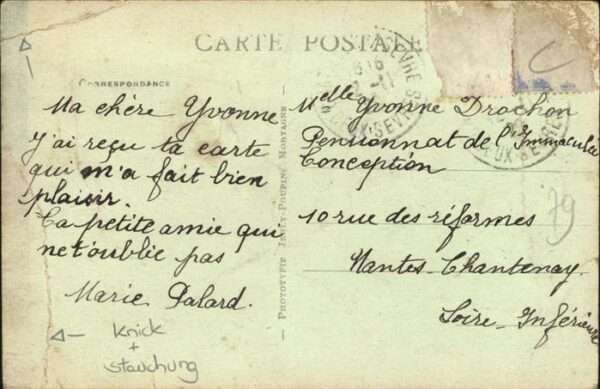 CARTE POSTALE
CORRESPONDANCE
Ma chère Yvonne
J'ai reçu ta carte
qui m'a fait bien
plaisir.
Ta petite amie qui
ne t'oublie pas
Marie Palard.
Knick
+
Stauchung
PHOTOTYPIE JOLLY-POUPIN, MORTAGNE
Melle Yvonne Drochon
Pensionnat de l'Immaculée
Conception
10 rue des réformes
Nantes-Chantenay
Loire-Inférieure
79